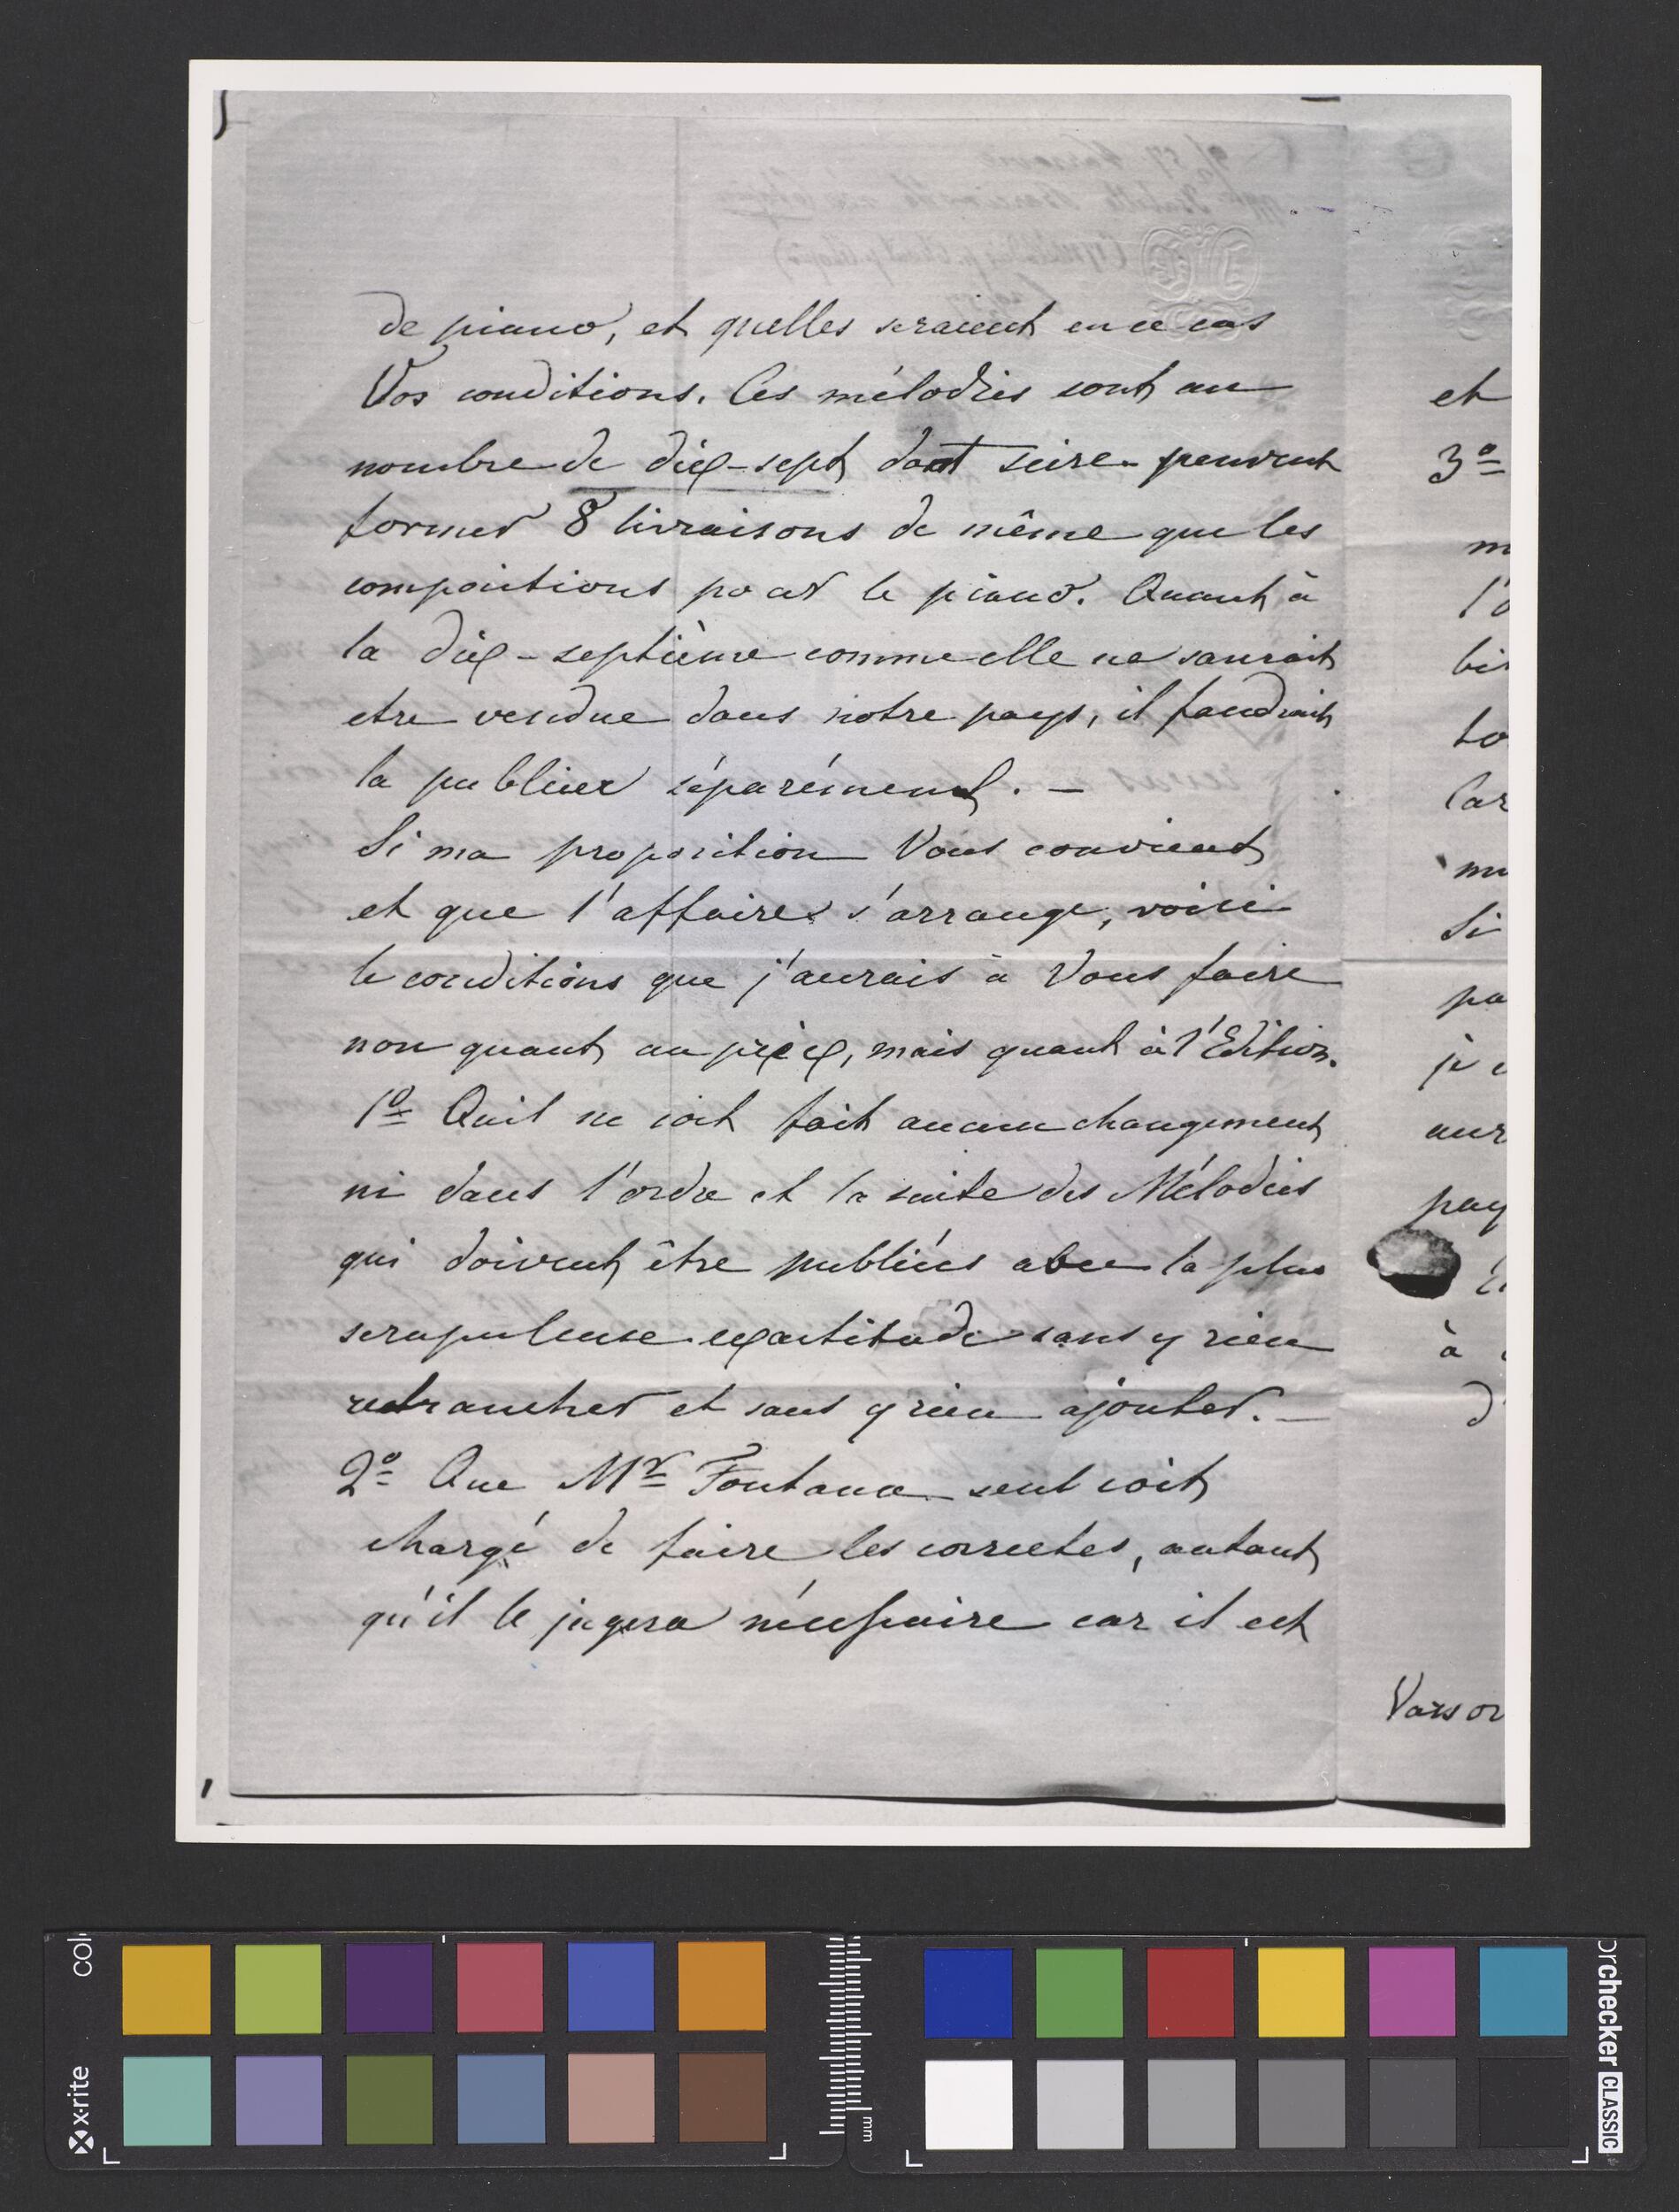 de piano, et quelles seraient en ce cas
Vos conditions. Ces mélodies sont au
nombre de dix-sept dont seize peuvent
former 8 livraisons de même que les
compositions pour le piano. Quant à
la dix-septième comme elle ne saurait
etre vendue dans notre pays, il faudrait
la publier séparément. —
Si ma proposition Vous convient
et que l'affaire s'arrange, voici
le conditions que j'aurais à Vous faire
non quant au prix, mais quant à l'Edition.
1º Quil ne soit fait aucun changement
ni dans l'ordre et la suite des Mélodies
qui doivent être publiées avec la plus
scrupuleuse exactitude sans y rien
retrancher et sans y rien ajouter. —
2º Que Mr Fontana seul soit
chargé de faire les correctes, autant
qu'il le jugera nécessaire car il est
et
3º
m
l'o
bi
to
Car
mu
Si
pa
je
aur
pay
à
d'
Varso
x-rite
colorchecker CLASSIC
mm